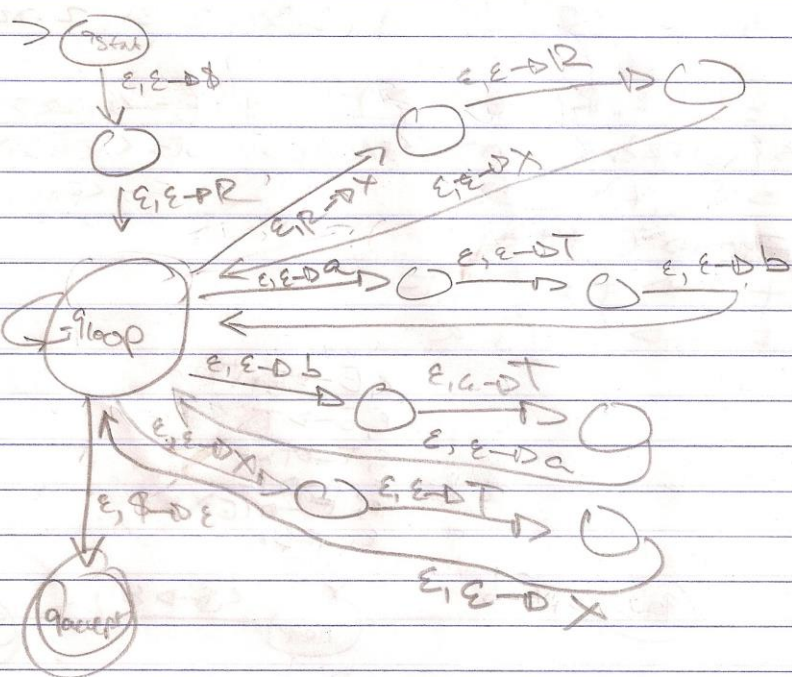 qstart
ε, ε→$
ε, ε→R
ε, ε→R
ε, R→X
ε, ε→X
ε, ε→a
ε, ε→T
ε, ε→b
qloop
ε, ε→b
ε, ε→T
ε, ε→a
ε, ε→X
ε, ε→T
ε, $→ε
ε, ε→X
qaccept